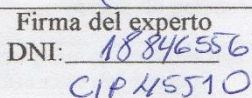 Firma del experto
DNI: 18846556
CIP 45510